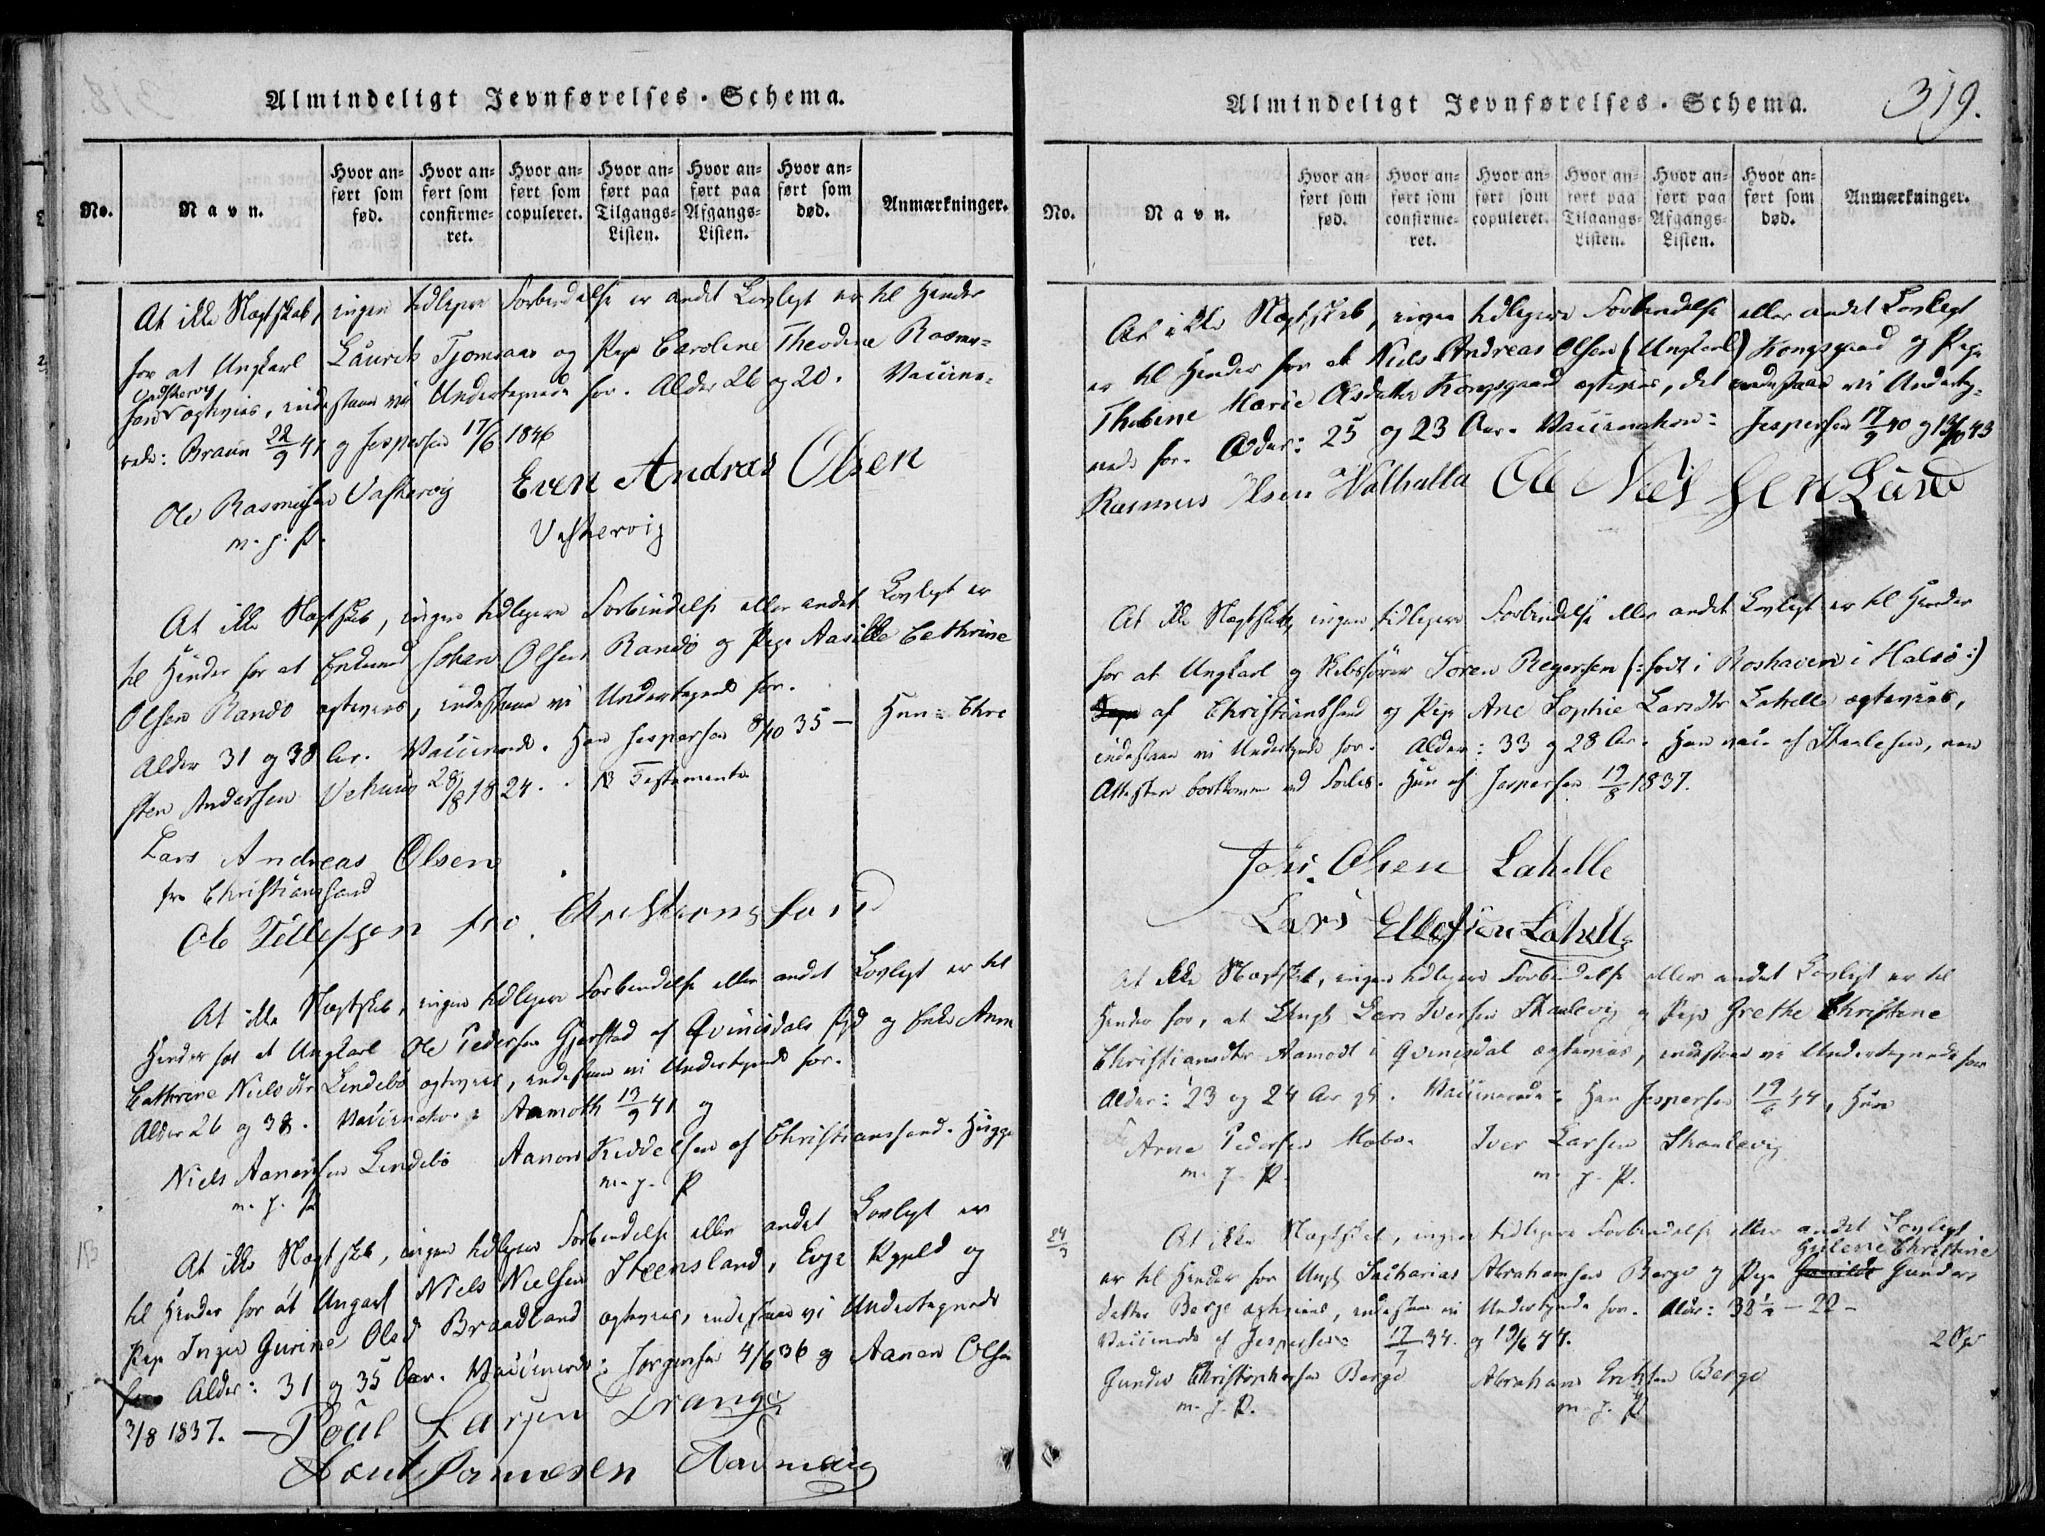 Almindeligt Jevnførelses-Schema.
No.
Navn.
Hvor anført som fød.
Hvor anført som confirmeret.
Hvor anført som copuleret.
Hvor anført paa Tilgangs-Listen.
Hvor anført paa Afgangs-Listen.
Hvor anført som død.
Anmærkninger.
At ikke Slægtskab, ingen tidligere Forbindelse er andet Lovligt er til Hinder
for at Ungkarl Laurits Tjomsaas og Pige Caroline Theodine Rasmus-
ægtevies, indestaae vi Undertegnede for. Alder 26 og 20. Vaccine-
rede: Braun 22/9 41 og Jespersen 17/6 1846
Ole Rasmussen Vaskervig Even Andras Olsen
m. f. P. Vaskervig
At ikke Slægtskab, ingen tidligere Forbindelse eller andet Lovligt er
til Hinder for at Enkemd Johan Olsen Randø og Pige Aasille Cathrine
Olsen Randø ægtevies, indestaae vi Undertegnede for.
Alder 31 og 38 Aar. Vaccinerede. Han Jespersen 8/10 35 — Hun: Chri
sten Andersen 28/8 1824. Testamente
Lars Andreas Olsen
fra Christiansand
Ole Tellefsen fra Christiansand
At ikke Slægtskab, ingen tidligere Forbindelse eller andet Lovligt er til
Hinder for at Ungkarl Ole Pedersen Gjerstad af Qvinisdals og Enke Anne
Cathrine Nielsdtr Lindebø ægtevies, indestaae vi Undertegnede for.
Alder 26 og 38. Vaccination: Aamoth 19/9 41 og
Niels Aanensen Lindebø Aanon Keddelsen af Christianssand.
m. f. P. m. f. P.
At ikke Slægtskab, ingen tidligere Forbindelse eller andet Lovligt er
til Hinder for at Ungkarl Niels Nielsen Steensland, Evje og
Pige Inger Gurine Olsd Braadland ægtevies, indestaae vi Undertegnede
for Alder: 31 og 35 Aar. Vaccinerede: Jørgensen 4/6 36 og Aanen Olsen
3/8 1837. — Poul Larsen Drange
Almindeligt Jevnførelses-Schema.
319.
No.
Navn.
Hvor anført som fød.
Hvor anført som confirmeret.
Hvor anført som copuleret.
Hvor anført paa Tilgangs-Listen.
Hvor anført paa Afgangs-Listen.
Hvor anført som død.
Anmærkninger.
At ikke Slægtskab, ingen tidligere Forbindelse eller andet Lovligt
er til Hinder for at Niels Andreas Olsen (Ungkarl) Kongsgaard og Pige
Thobine Marie Olsdatter Kongsgaard ægtevies, det indestaae vi Underteg-
nede for. Alder: 25 og 23 Aar. Vaccination: Jespersen 17/9 40 og
Rasmus Olsen Walhalla Ole Nielssen Lund
At ikke Slægtskab, ingen tidligere Forbindelse eller andet Lovligt er til Hinder
for at Ungkarl og Skibsfører Søren Reyersen (: født i Roshaven i Halsø :)
af Christianssand og Pige Ane Sophie Larsdtr Lahelle ægtevies,
indestaae vi Undertegnede for. Alder: 33 og 28 Aar. Han vacc. af Staalesen, men
Attesten bortkommen ved Forlis. Hun af Jespersen 19/8 1837.
Johs. Olsen Lahelle
Lars Ellefsen Lahelle
At ikke Slægtskab, ingen tidligere Forbindelse eller andet Lovligt er til
Hinder for, at Ungk Lars Iversen Skaalevig og Pige Grethe Christine
Christiansdtr Aamodt i Qvinesdal ægtevies, indestaae vi Undertegnede for
Alder: 23 og 24 Aar gl. Vaccinerede: Han Jespersen 19/6 44, Hun
Arne Pedersen Mæbø. Iver Larsen Skaalevig
m. f. P. m. f. P.
24/3
At ikke Slægtskab, ingen tidligere Forbindelse eller andet Lovligt
er til Hinder for Ungk Zacharias Abrahamsen Berge og Pige Gunders
datter Berge ægtevies, indestaae vi Undertegnede for. Alder: 32 1/2 — 22 —
Vaccinerede af Jespersen: 17/7 34. og 19/6 44.
Gunder Christophersen Berge Abraham Eriksen Berge
m. f. P. m. f. P.